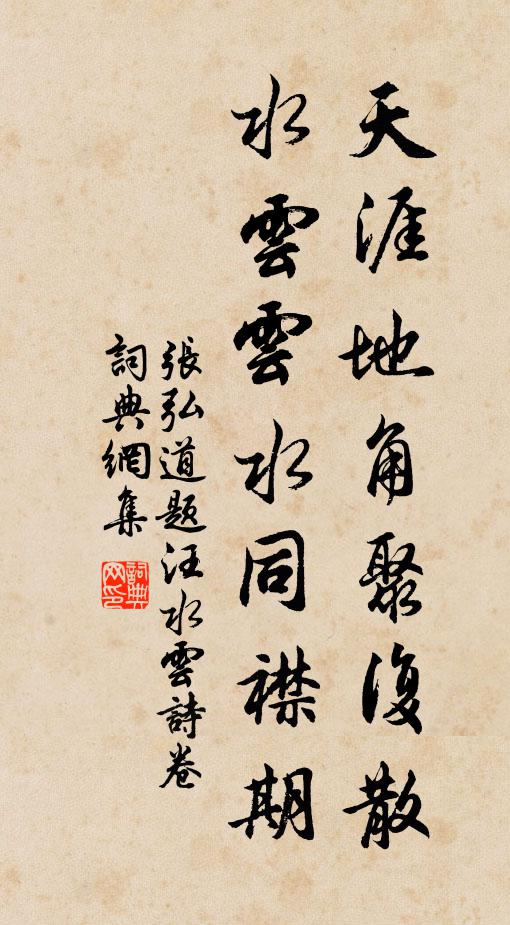 天涯地角聚復散
水雲雲水同襟期
張弘道題汪水雲詩卷
詞典網集
詞典网印